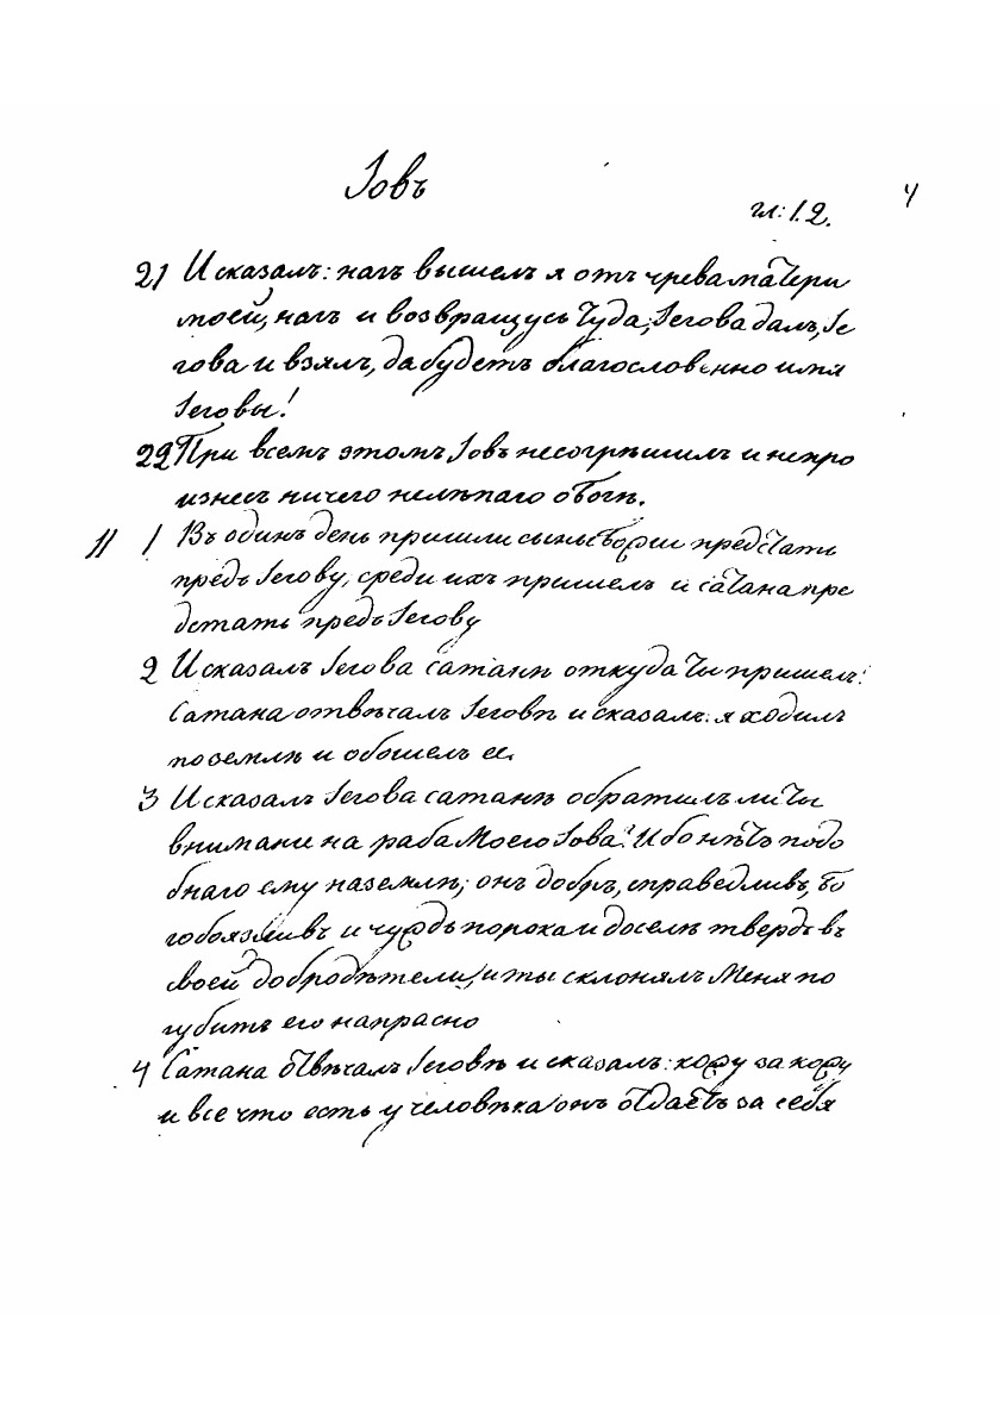 Іовъ
4
гл: 1. 2.
21 И сказалъ: нагъ вышелъ я отъ чрева матери
моей, нагъ и возвращусь туда; Іегова далъ, Іе
гова и взялъ, да будетъ благословенно имя
Іеговы!
22 При всемъ этомъ Іовъ несогрѣшилъ и непро
изнесъ ничего нелѣпаго о Богѣ.
II 1 Въ одинъ день пришли сыны Божіи предстать
предъ Іегову, среди ихъ пришелъ и сатана пре
дстать предъ Іегову
2 И сказалъ Іегова сатанѣ откуда ты пришелъ?
Сатана отвѣчалъ Іеговѣ и сказалъ: я ходилъ
по землѣ и обошелъ ее.
3 И сказалъ Іегова сатанѣ обратилъ ли ты
внимание на раба Моего Іова? Ибо нѣтъ подо
бнаго ему на землѣ; онъ добръ, справедливъ, бо
гобоязливъ и чуждъ порока и доселѣ твердъ въ
своей добродѣтели, и ты склонялъ Меня по
губить его напрасно
4 Сатана отвѣчалъ Іеговѣ и сказалъ: кожу за кожу
и все что есть у человѣка онъ отдаетъ за себя